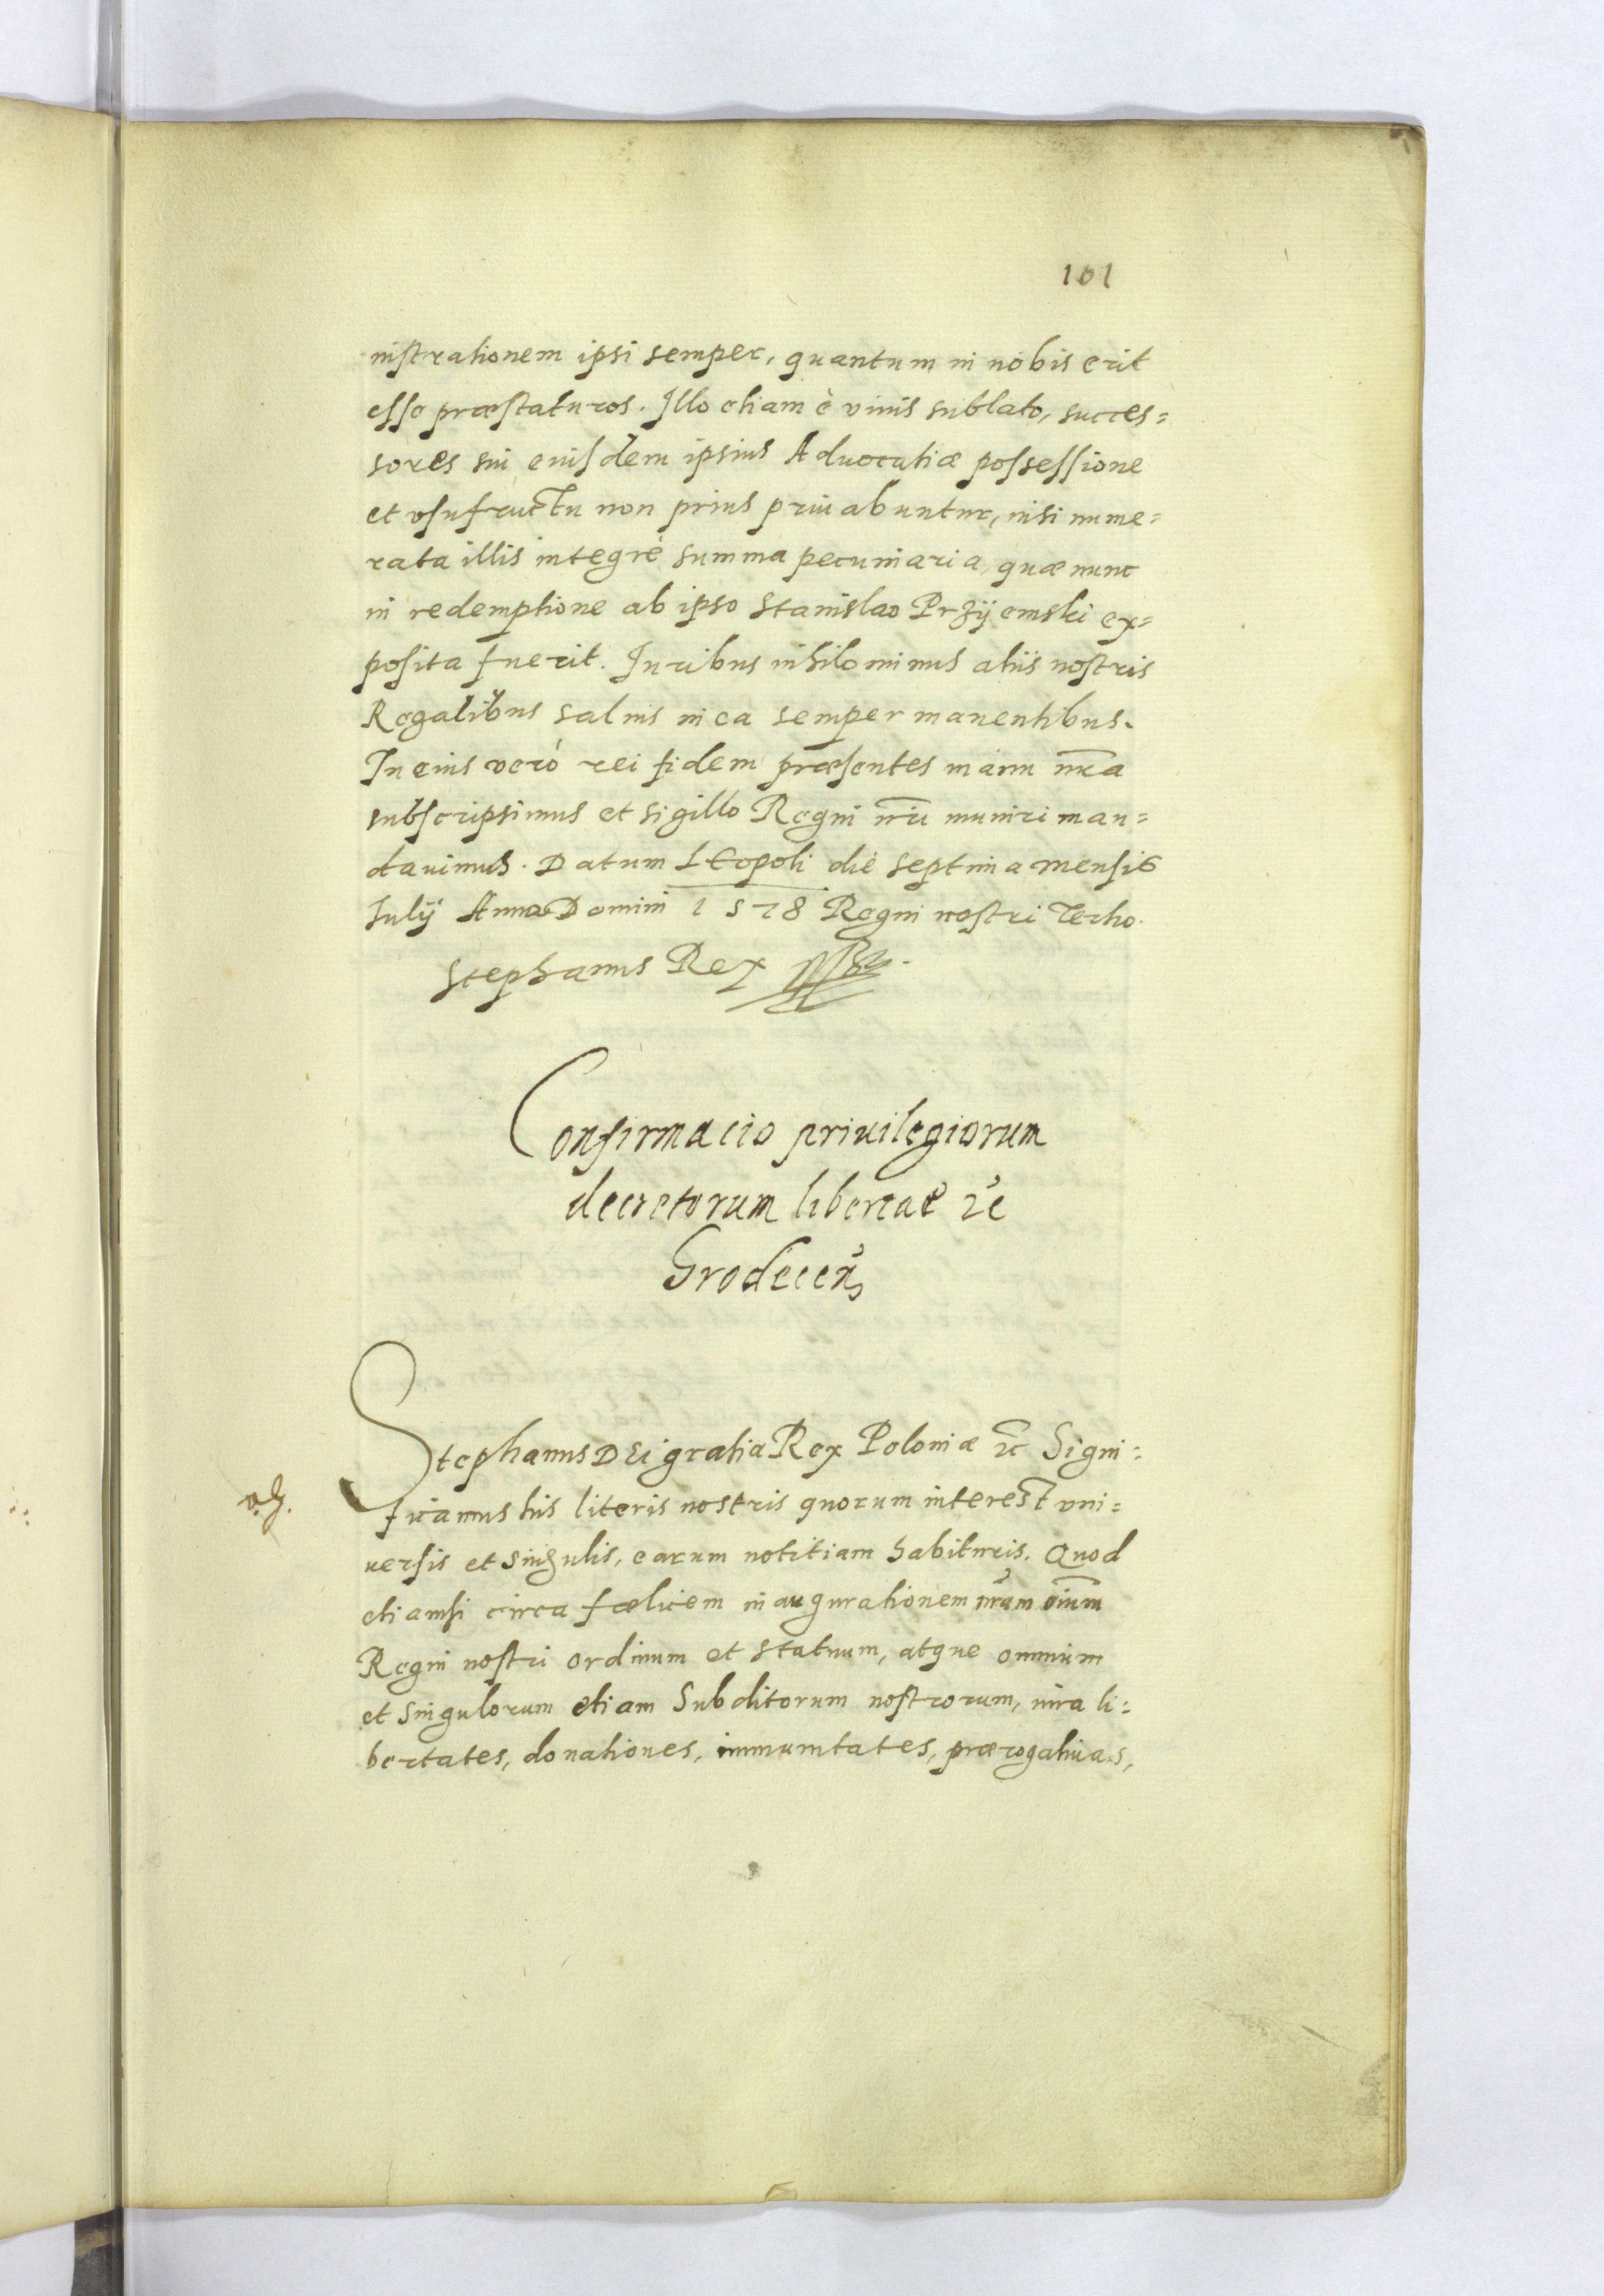 101
nistrationem ipsi semper, quantum in nobis erit
esse præstaturos. Illo etiam è vivis sublato, succes=
sores sui eiusdem ipsius Aduocatiæ possessione
et vsufructu non prius priuabuntur, nisi nume=
rata illis integrè summa pecuniaria, quæ nunc
in redemptione ab ipso Stanislao Przijemski ex=
posita fuerit. Iuribus nihilominus aliis nostris
Regalibus saluis in ea semper manentibus.
In eius verò rei fidem præsentes manu nr̄a
subscripsimus et sigillo Regni nr̄i muniri man=
dauimus. Datum LEopoli die septima mensis
Iulij Anno Domini 1578 Regni nostri Tertio.
Stephanus Rex
Confirmacio priuilegiorum
decretorum libertat ꝛc
Grodecen
Stephanus DEi gratia Rex Poloniæ ꝛc Signi=
ficamus his literis nostris quorum interest vni=
uersis et singulis, earum notitiam habituris. Quod
etiamsi circa fœlicem inaugurationem nr̄am oīum
Regni nostri ordinum et statuum, atque omnium
et singulorum etiam Subditorum nostrorum, iura li=
bertates, donationes, immunitates, prærogatiuas,